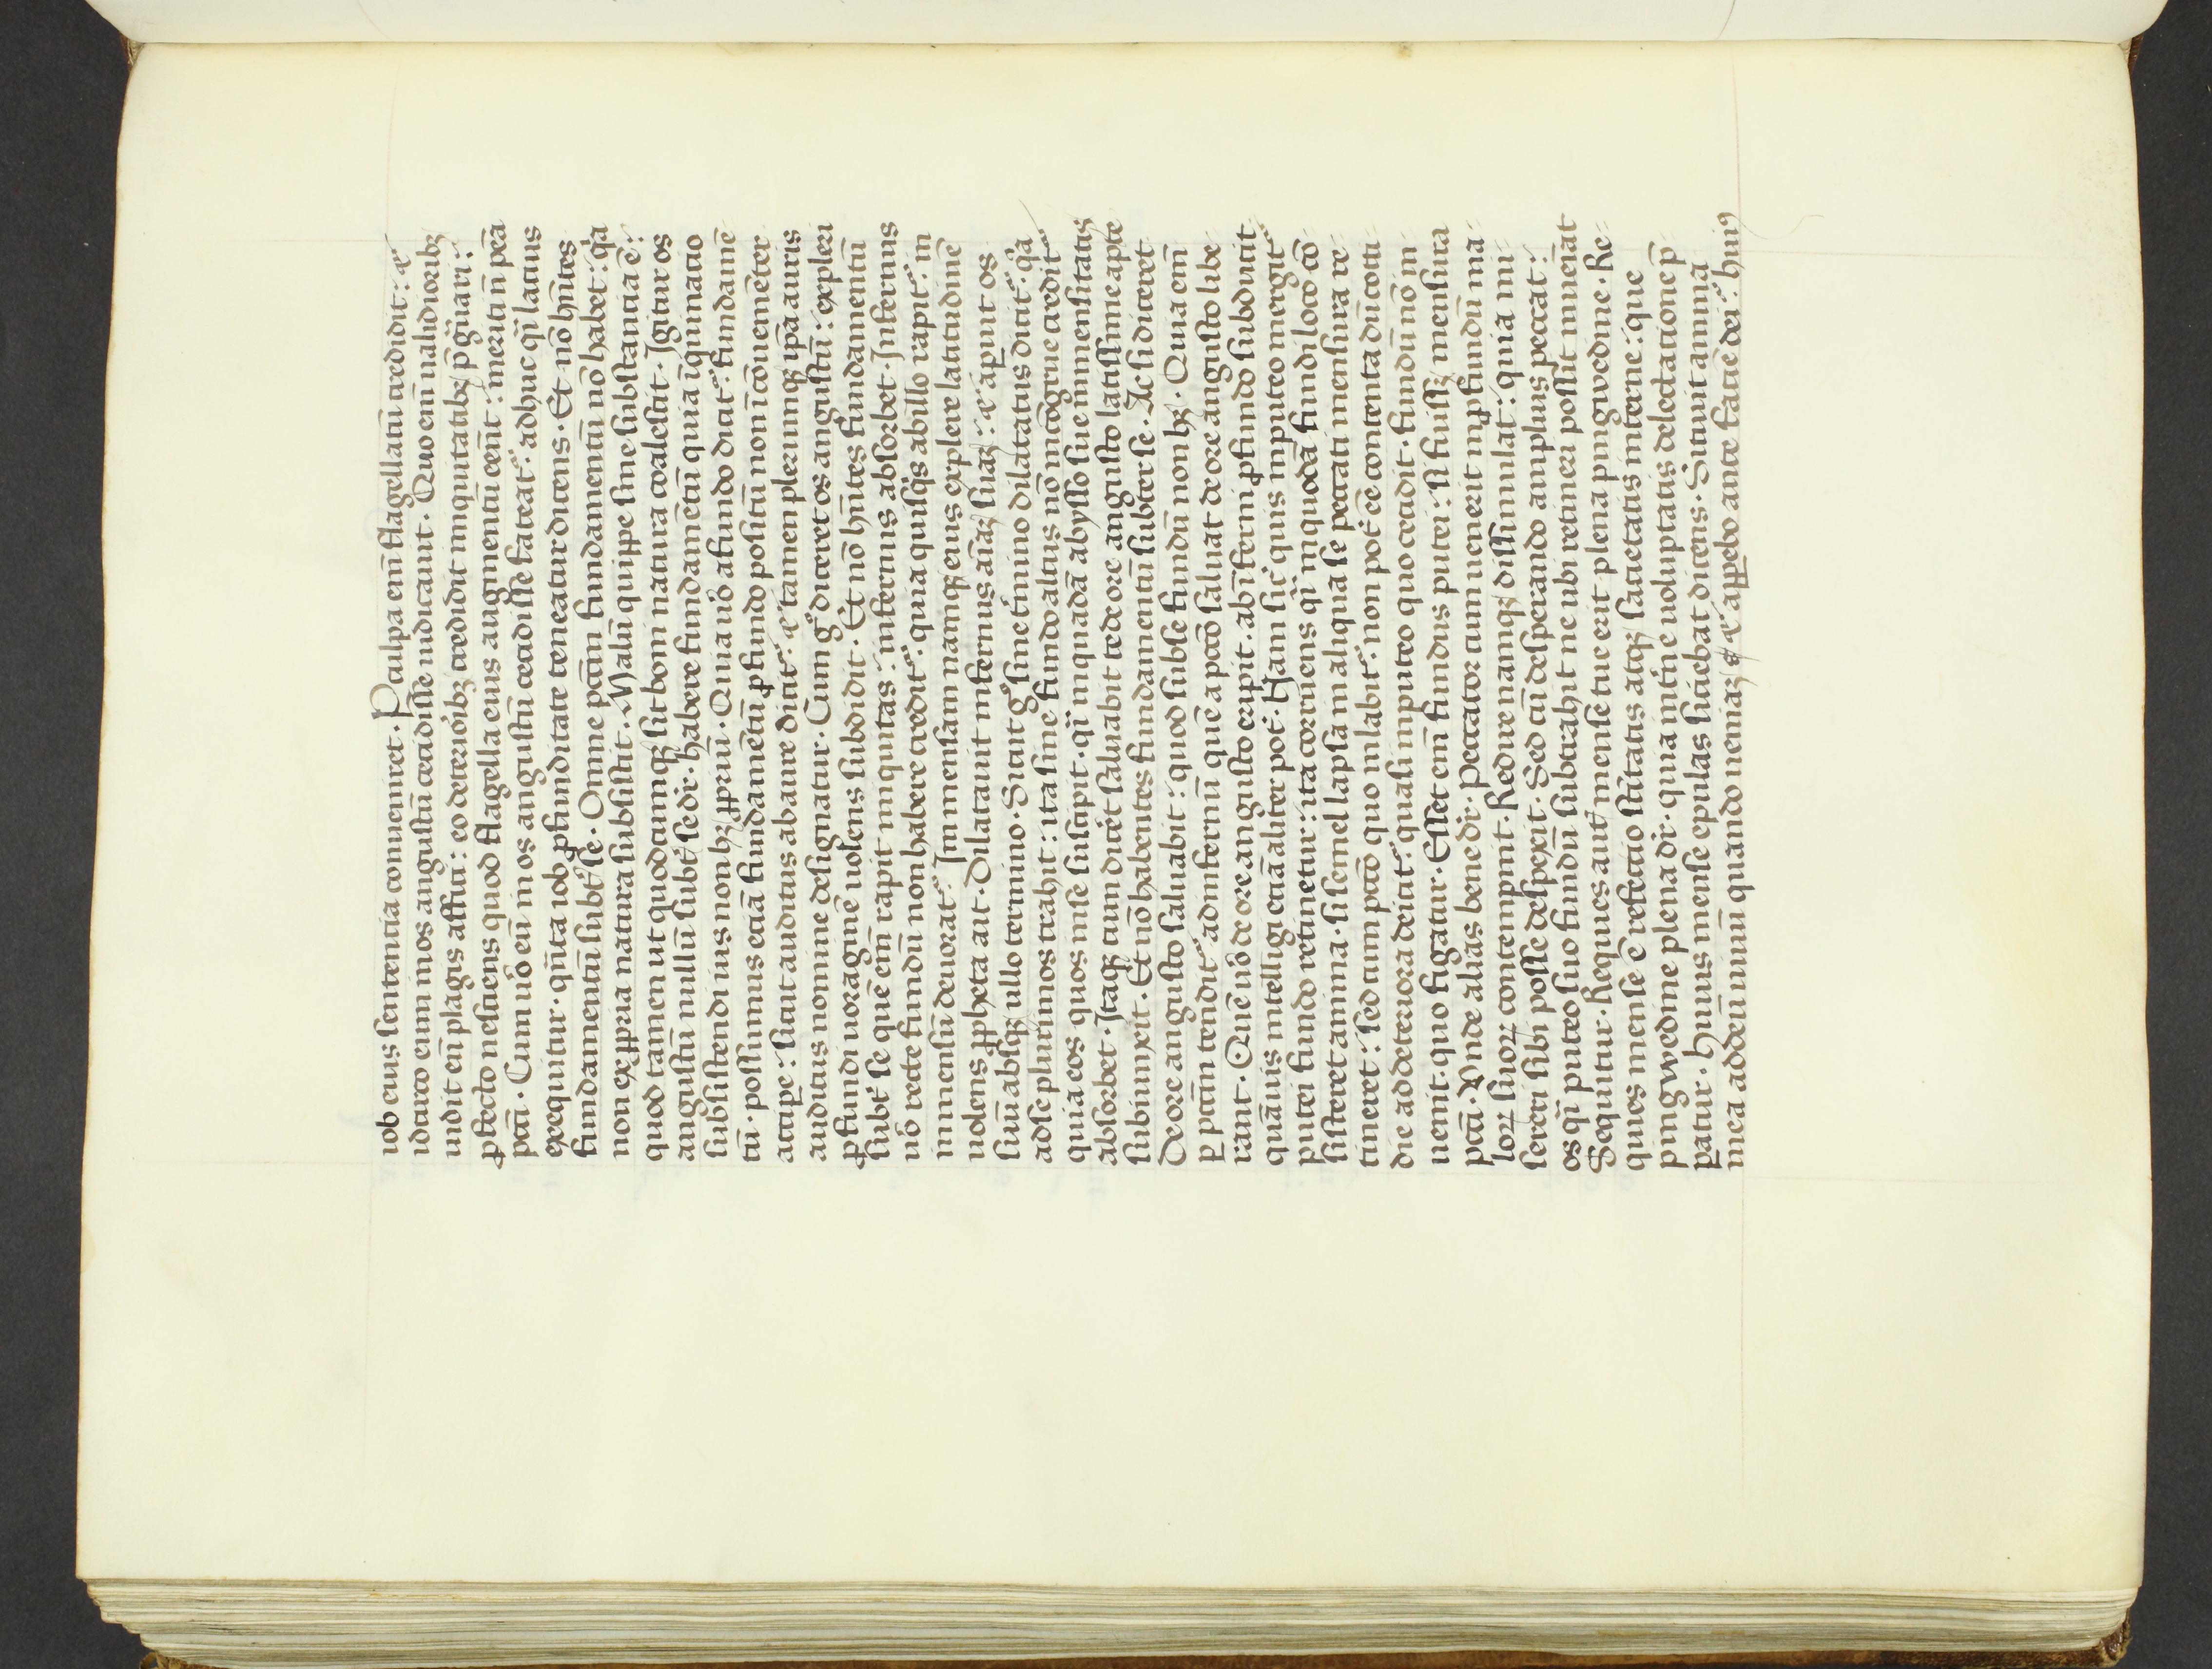 iob eius sententia conueniret · P culpa em̄ flagellatū credidit : ⁊
idcirco eum in os angustū cecidisse iudicauit · Quo em̄ ualidioribꝫ
uidit eū plagis affici : eo deterioribꝫ credidit iniquitatibꝫ p̄guari :
ꝓfecto nesciens quod flagella eius augmentū cent̄ : merita n̄ pena
pctī · Cum uō eū in os angustū cecidisse fateat̄ : adhuc qͥ latius
exequitur · qn̄ta iob ꝓfunditate teneatur dicens · Et nō hn̄tes
fundamentū subt̄ se · Omne pctm̄ fundamentū nō habet : qͥa
non ex ꝓpria natura subsistit · Malū quippe sine substantia ē :
quod tamen ut quodcumqꝫ sit boni natura coalescit · Igitur os
angustū nullū subt̄ se dr̄ habere fundamētū quia iniquinatio
subsistendi ius non hꝫ ꝓpriū · Quia uō a fundo dicit̄ : fundamē
tū · possumus eciā fundamētū ꝓ fundo positū non icōuenieter
accipe : sicut auditus ab aure dicit̄ : ⁊ tamen plerumqꝫ ip̄a auris
auditus nomine designatur · Cum gͦ diceret os angustū : expleri
ꝓfundi uoraginē uolens subdidit · Et nō hn̄tes fundamentū
subt̄ se · quē em̄ rapit iniquitas : infernus absorbet · Infernus
uō recte fundū non habere credit̄ : quia quisqͥs ab illo rapit̄ : in
inmensū deuorat̄ · Inmensam namqꝫ eius explere latitudinē
uolens ꝓpheta ait · Dilatauit infernus aīaꝫ suaꝫ : ⁊ apuit os
suū absqꝫ ullo termino · Sicut gͦ sine t̄mino dilatatus dicit̄ : qͥa
ad se plurimos trahit : ita sine fundo altus nō incōgrue credit̄
quia eos quos in se suscipit · qͥ in quadā abysso sue inmensitatis
absorbet · Itaqꝫ cum dicet saluabit te de ore angusto latissime apte
subiunxit · Et nō habentes fundamentū subter se · Ac si diceret
De ore angusto saluabit : quod sub se fundū non hꝫ · Quia em̄
ꝑ pctm̄ tendit̄ ad infernū quē a pctō saluat de ore angusto libe
rant · Quē uō de ore angusto eripit · ab īferni ꝓfundo subducit
quāuis intelligi eciā aliter pot̄ · Nam sic̄ quis in puteo mergit̄
putei fundo retinetur : ita corruens qͥ in quodā fundi loco cō
sisteret anima · si semel lapsa in aliqua se peccati mensura re
tineret : sed cum pctō quo inlabit̄ · non pot̄ ēe contenta dū coti
die ad deteriora deicit̄ : quasi in puteo quo cecidit · fundū nō in
uenit · quo figatur · Esset em̄ fundus putei : si fuissꝫ mensura
pctī · Vnde alias bene dr̄ · Peccator cum uenerit in ꝓfundū ma
loꝝ suoꝝ contempnit · Redire namqꝫ dissimulat : quia mi
sereri sibi posse despexit · Sed cū desperando amplius peccat :
os qͥ puteo suo fundū subtrahit ne ubi retineri possit inueiat
Sequitur · Requies aut̄ mense tue erit plena pingwedine · Re
quies mense ē refectio st̄itatis atqꝫ satietatis interne : que
pingwedine plena dr̄ · quia int̄ne uoluptatis delectatione p̄
patur · Huius mense epulas sitiebat dicens · Sitiuit anima
mea ad deū uiuū quando ueniaꝫ ⁊ appebo ante faciē dei : huiꝰ